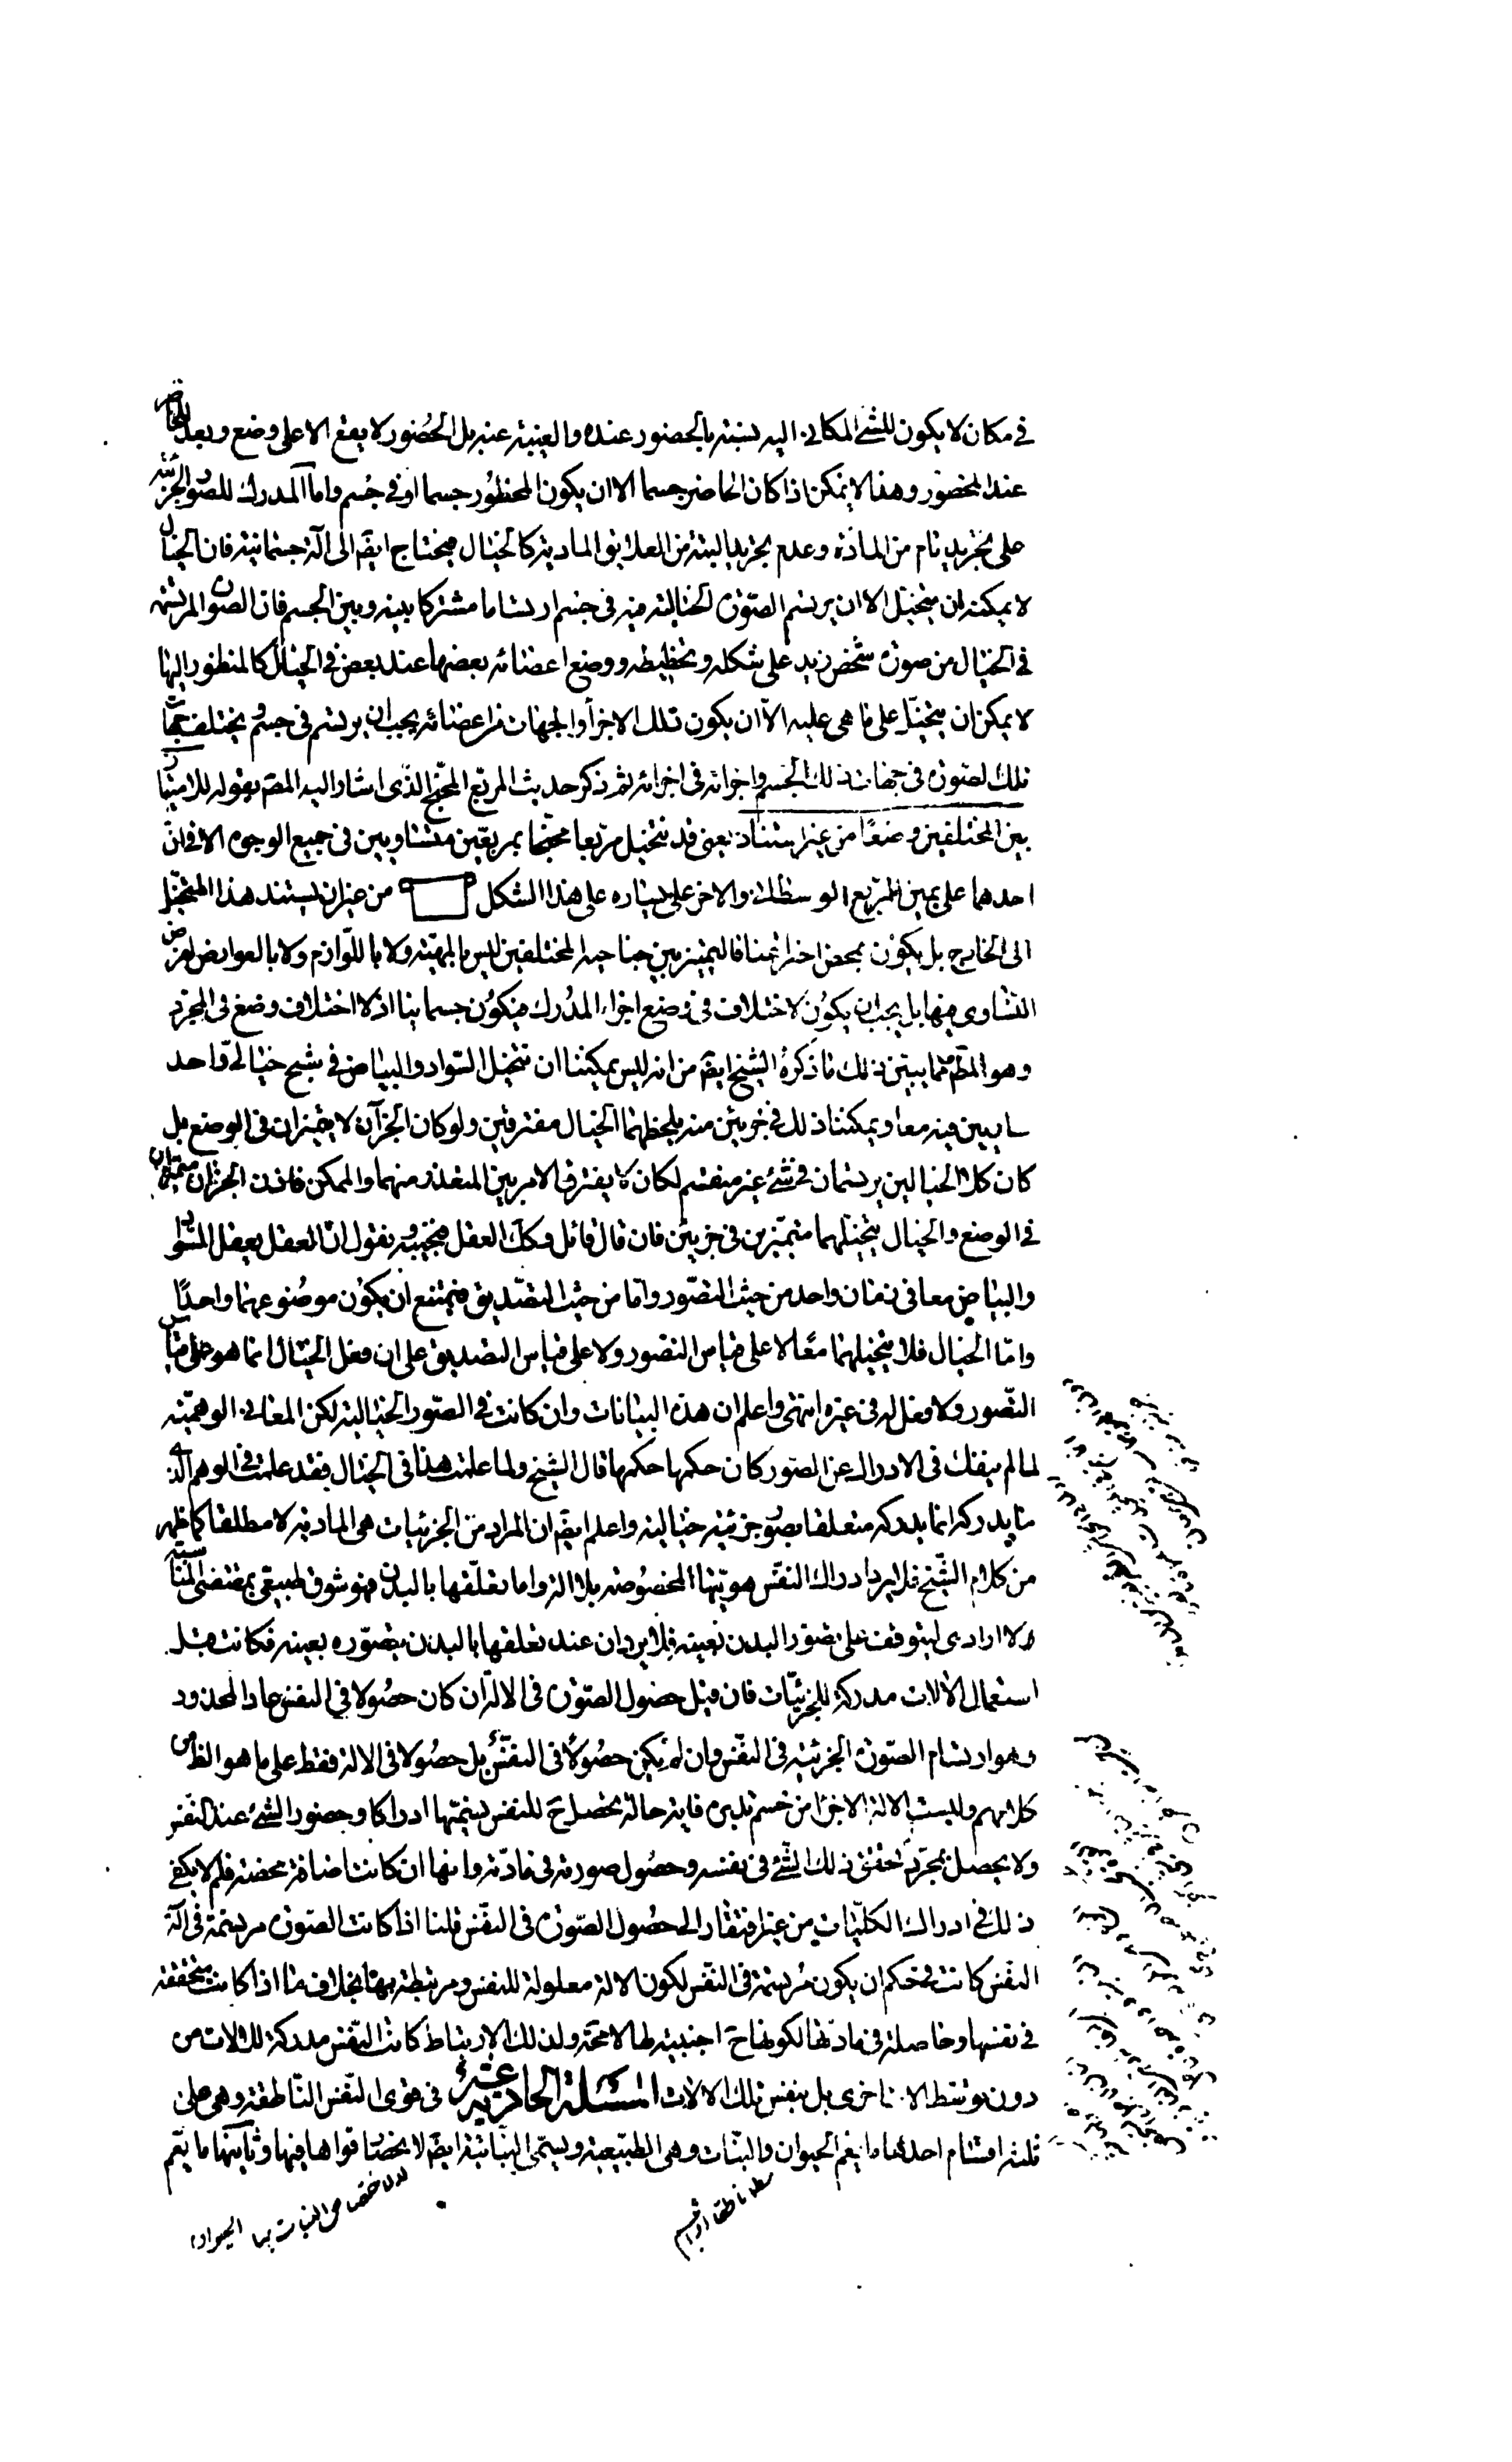 في مكان لا يكون للشئ المكاني اليه نسبته بالحضور عنده والغيبة عنه بل الحضور لا يقع الا على وضع وبعد للحاضر
عند المحضور وهذا لا يمكن اذا كان الحاضر جسما الا ان يكون المحظور جسما او في جسم واما المدرك للصور الجزئية
على تجريد تام من المادة وعدم تجريد البتة من العلايق المادية كالخيال فيحتاج ايضَ الى آلة جسمانية فان الخيال
لا يمكنه ان يتخيل الا ان يرتسم الصورة الخيالية فيه في جسم ارتساما مشتركا بينه وبين الجسم فان الصورة المرتسمة
في الخيال من صورة شخص زيد على شكله وتخطيطه ووضع اعضائه بعضها عند بعض في الخيال كالمنظور اليها
لا يمكن ان يتخيل على ما هى عليه الا ان يكون تلك الاجزأ والجهات من اعضائه يجب ان يرتسم في جسم ويختلف جهات
تلك الصورة في جهات ذلك الجسم واجزائه في اجزائه ثم ذكر حديث المربع المجنح الذى اشار اليه المصَ بقوله للامتياز
بين المختلفين وضعًا من غير استناد يعنى قد نتخيل مربعا مجنحا بمربعين متساويين في جميع الوجوه الا في ان
احدهما على يمين المربع الوسطانى والاخر على يساره على هذا الشكل من غير ان يستند هذا المتخيل
الى الخارج بل يكون بمحض اختراعنا فالتميز بين جناحيه المختلفين ليس بالمهية ولا باللوازم ولا بالعوارض لفرض
التساوى فيها بل يجب ان يكون لاختلاف في وضع اجزاء المدرك فيكون جسمانيا اذ لا اختلاف وضع في المجرد
وهو المطَ مما يبين ذلك ما ذكره الشيخ ايضَ من انه ليس يمكننا ان نتخيل السواد والبياض في شبح خيالى واحد
ساريين فيه معا ويمكننا ذلك في جزئين منه يلحظهما الخيال مفترقين ولو كان الجزآن لا يتميزان في الوضع بل
كان كلا الخيالين يرتسمان في شئ غير منقسم لكان لا يفترق الامر بين المتعذر منهما والممكن فاذن الجزءان متميزان
في الوضع والخيال يتخيلهما متميزين في جزئين فان قال قائل وكك العقل فنجيبه ونقول ان العقل يعقل السواد
والبياض معا في زمان واحد من حيث التصور واما من حيث التصديق فيمتنع ان يكون موضوعهما واحدًا
واما الخيال فلا يتخيلهما معًا لا على قياس التصور ولا على قياس التصديق على ان فعل الخيال انما هو على قياس
التصور ولا فعل له في غيره انتهى واعلم ان هذه البيانات وان كانت في الصور الخيالية لكن المعانى الوهمية
لما لم ينفك في الادراك عن الصور كان حكمها حكمها قال الشيخ ولما علمت هذا في الخيال فقد علمت في الوهم الذى
ما يدركه انما يدركه متعلقا بصور جزئية خيالية واعلم ايضَ ان المراد من الجزئيات هى المادية لا مطلقا كما ظهر
من كلام الشيخ فلا يرد ادراك النفس هويتها المخصوصة بلا الة واما تعلقها بالبدن فهو شوق طبيعى بمقتضى المناسبة
لا ارادى ليتوقف على تصور البدن بعينه فلا يرد ان عند تعلقها بالبدن يتصوره بعينه فكانت قبل
استعمال الآلات مدركة للجزئيات فان قيل حصول الصورة في الالة ان كان حصولا في النفس عاد المحذور
وهو ارتسام الصورة الجزئية في النفس وان لم يكن حصولًا في النفس بل حصولا في الالة فقط على ما هو الظَ من
كلامهم وليست الالة الا جزًا من جسم تدبره فاية حالة تحصل حَ للنفس نسميها ادراكا وحضور الشئ عند النفس
ولا يحصل بمجرد تحقق ذلك الشئ في نفسه وحصول صورته في مادته وانها ان كانت اضافة محضة فلم لا يكفى
ذلك في ادراك الكليات من غير افتقار الى حصول الصورة في النفس قلنا اذا كانت الصورة مرتسمة في آلة
النفس كانت في حكم ان يكون مرتسمة في النفس لكون الالة معلولة للنفس ومرتبطة بها بخلاف ما اذا كانت متحققة
في نفسها وحاصلة في مادتها لكونها حَ اجنبية لها لا محَة ولذلك الارتباط كانت النفس مدركة للآلات من
دون توسط الات اخرى بل بنفس تلك الالات المسئلة الحادية عشرة في قوى النفس الناطقة وهى على
ثلثة اقسام احدها ما يعم الحيوان والنبات وهى الطبيعية ويسمى النباتية ايضَ لانحصار قواها فيها وثانيها ما يعم